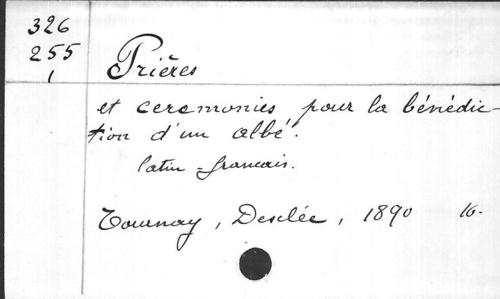 326
255
1
Prières
et ceremonies pour la bénédic-
tion d'un abbé.
latin-francais.
Tournay, Desclée, 1890 16.